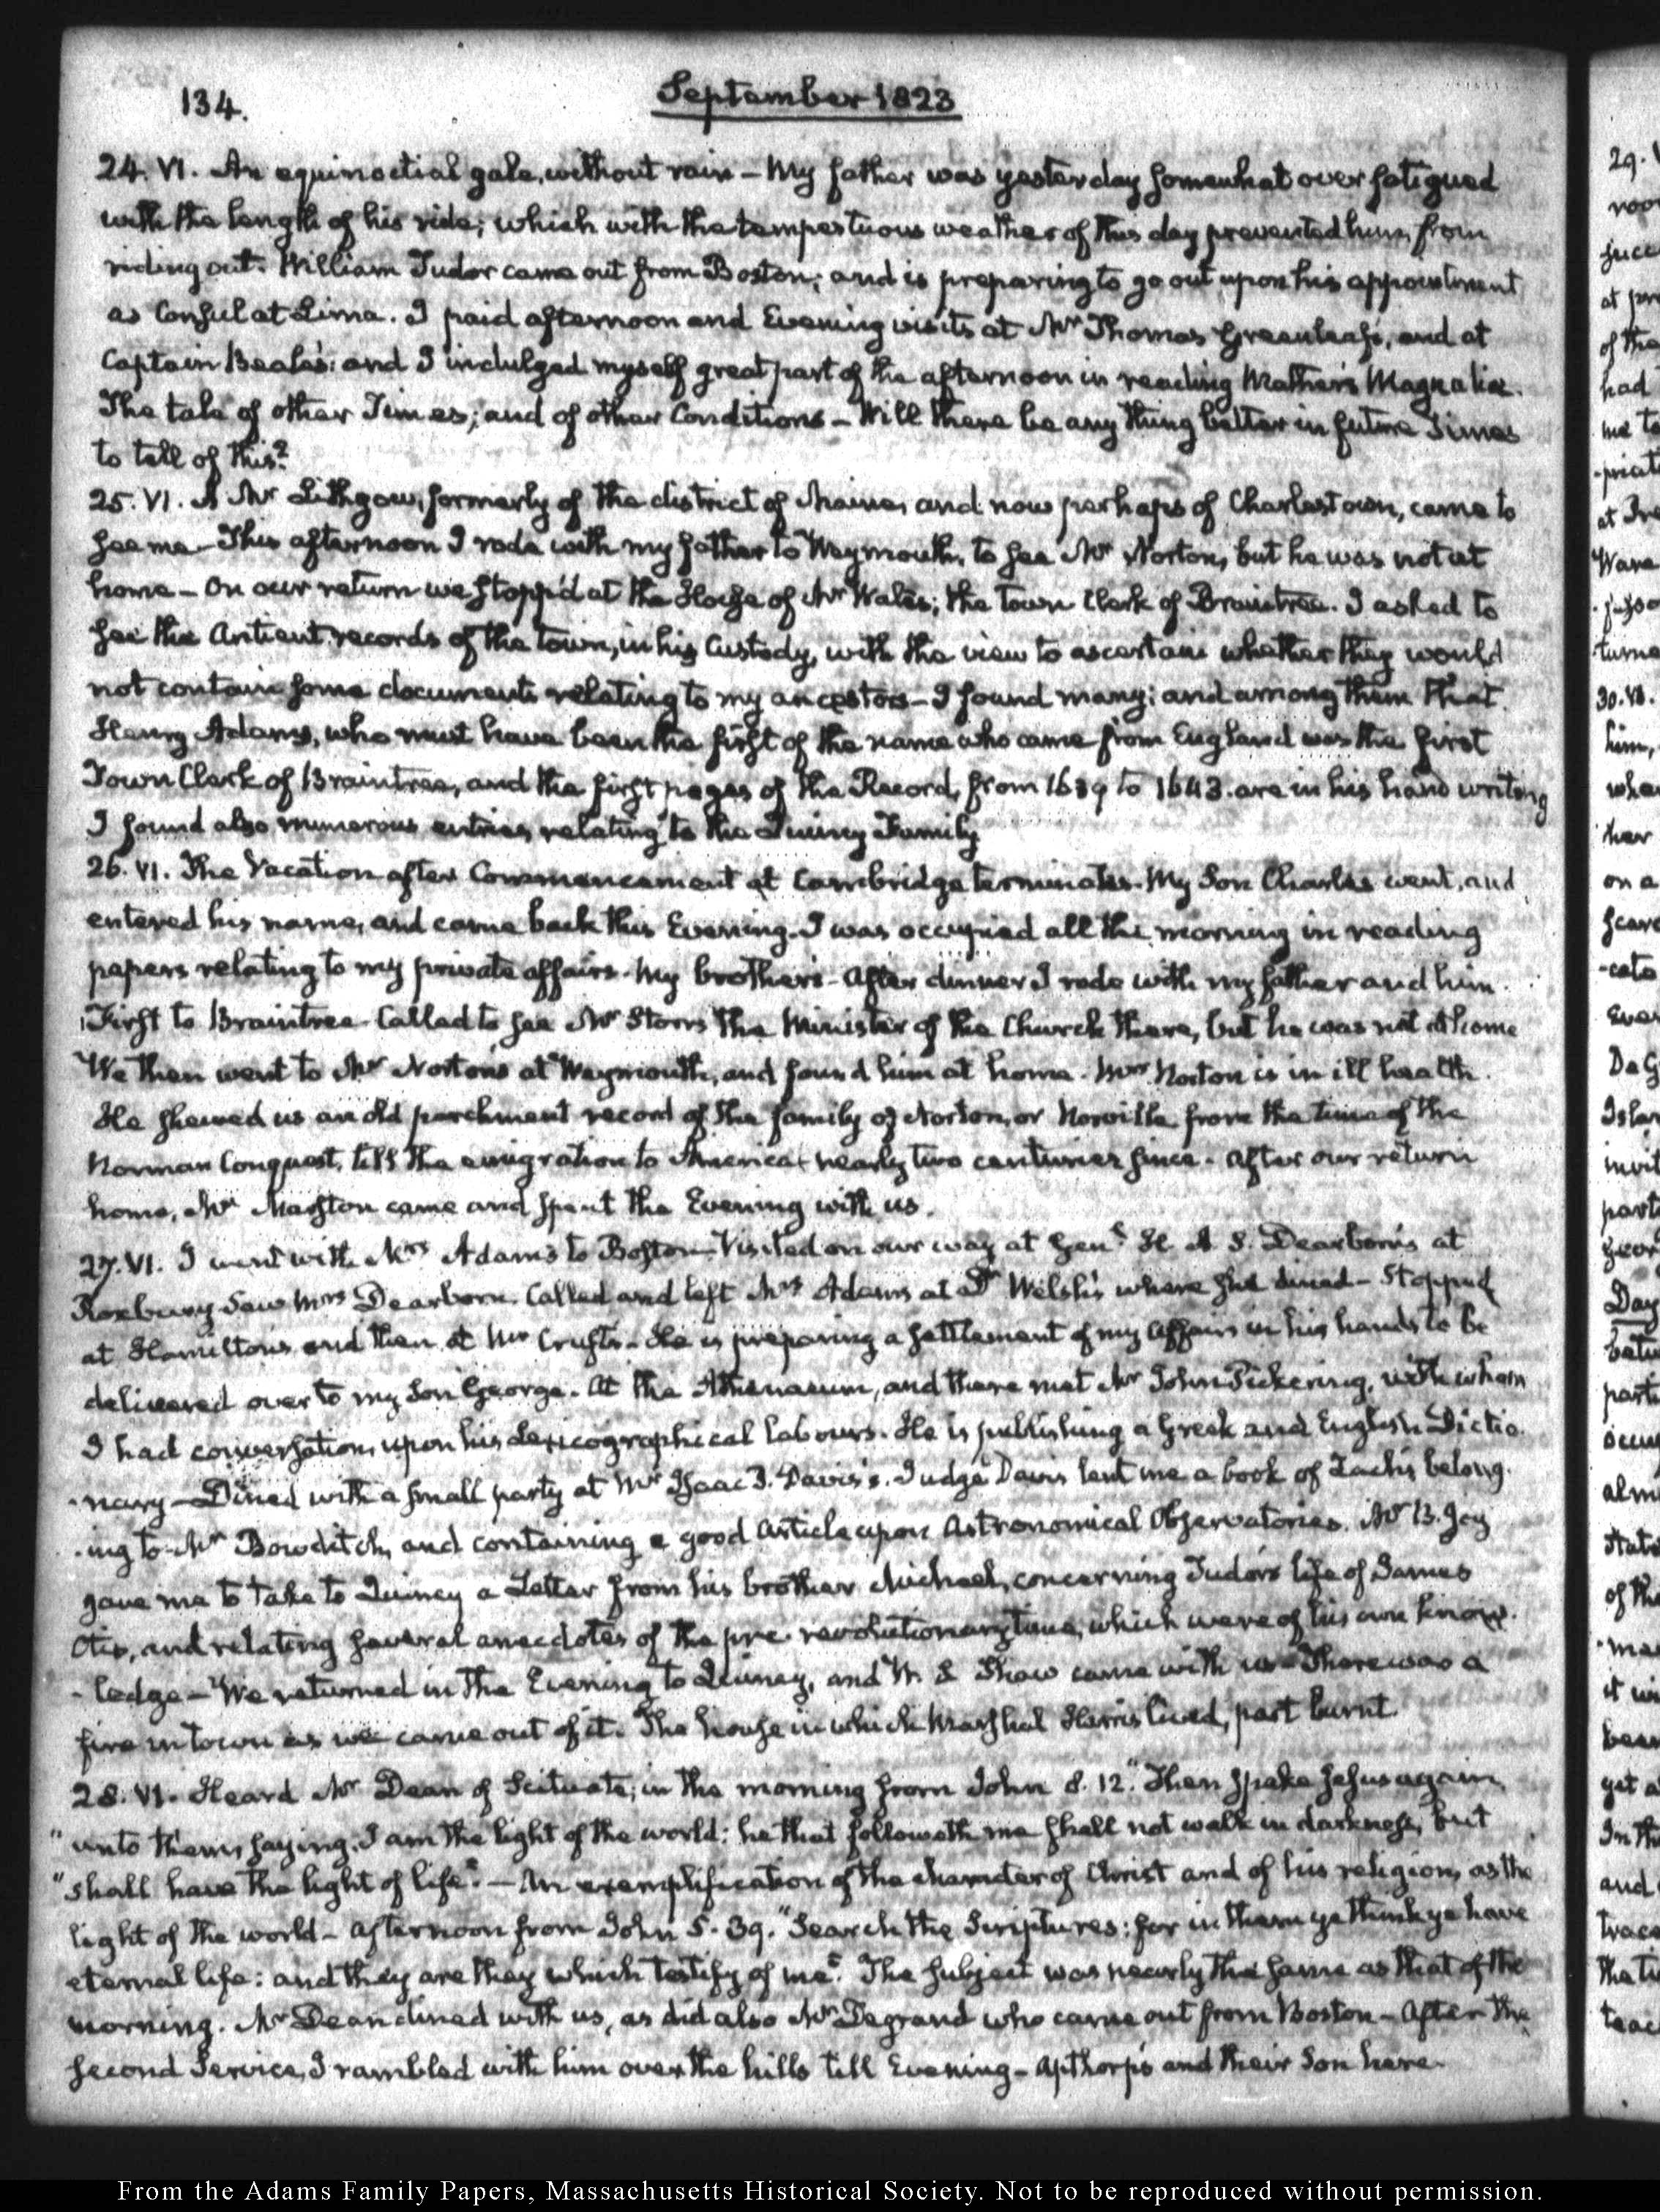 134.
September 1823
24. VI. An equinoctial gale, without rain — My father was yesterday somewhat over fatigued
with the length of his ride; which with the tempestuous weather of this day prevented him from
riding out. William Tudor came out from Boston; and is preparing to go out upon his appointment
as Consul at Lima. I paid afternoon and Evening visits at Mr Thomas Greenleaf's, and at
Captain Beale's: and I indulged myself great part of the afternoon in reading Mather's Magnalia.
The tale of other Times; and of other Conditions — Will there be any thing better in future Times
to tell of this?
25. VI. A Mr Lithgow, formerly of the district of Maine, and now perhaps of Charlestown, came to
see me — This afternoon I rode with my father to Weymouth, to see Mr Norton, but he was not at
home — On our return we stopp'd at the House of Mr Wales; the town Clerk of Braintree. I asked to
see the Antient records of the town, in his Custody, with the view to ascertain whether they would
not contain some documents relating to my ancestors — I found many; and among them that
Henry Adams, who must have been the first of the name who came from England was the first
Town Clerk of Braintree, and the first pages of the Record, from 1639 to 1643. are in his hand writing
I found also numerous entries relating to the Quincy Family
26. VI. The Vacation after Commencement at Cambridge terminates. My Son Charles went, and
entered his name, and came back this Evening. I was occupied all the morning in reading
papers relating to my private affairs. My brother's — After dinner I rode with my father and him.
First to Braintree. Called to see Mr Storrs the Minister of the Church there, but he was not at home
We then went to Mr Norton's at Weymouth, and found him at home. Mrs Norton is in ill health.
He shewed us an old parchment record of the family of Norton, or Norville from the time of the
Norman Conquest, till the emigration to America nearly two centuries since. After our return
home, Mr Marston came and spent the Evening with us.
27. VI. I went with Mrs Adams to Boston — Visited on our way at Genl H. A. S. Dearborn's at
Roxbury Saw Mrs Dearborn. Called and left Mrs Adams at Dr Welsh's where she dined — Stopped
at Hamilton's and then at Mr Cruft's — He is preparing a settlement of my affairs in his hands to be
delivered over to my Son George. At the Athenaeum, and there met Mr John Pickering, with whom
I had conversation, upon his lexicographical labours. He is publishing a Greek and English Dictio-
-nary — Dined with a small party at Mr Isaac P. Davis's. Judge Davis lent me a book of Zach's belong-
-ing to Mr Bowditch, and containing a good Article upon Astronomical Observatories. Mr B. Joy
gave me to take to Quincy a Letter from his brother Michael, concerning Tudor's life of James
Otis, and relating several anecdotes of the pre-revolutionary time, which were of his own know-
-ledge — We returned in the Evening to Quincy, and W. S. Shaw came with us — There was a
fire in town as we came out of it. The house in which Marshal Harris lived, part burnt
28. VI. Heard Mr Dean of Scituate; in the morning from John 8. 12. "Then spake Jesus again
"unto them, saying, I am the light of the world: he that followeth me shall not walk in darkness, but
"shall have the light of life". — An exemplification of the character of Christ and of his religion, as the
light of the world — Afternoon from John 5. 39. "Search the Scriptures: for in them ye think ye have
eternal life: and they are they which testify of me". The subject was nearly the same as that of the
morning. Mr Dean dined with us, as did also Mr Degrand who came out from Boston — After the
second Service, I rambled with him over the hills till Evening — Apthorp's and their Son here.
From the Adams Family Papers, Massachusetts Historical Society. Not to be reproduced without permission.